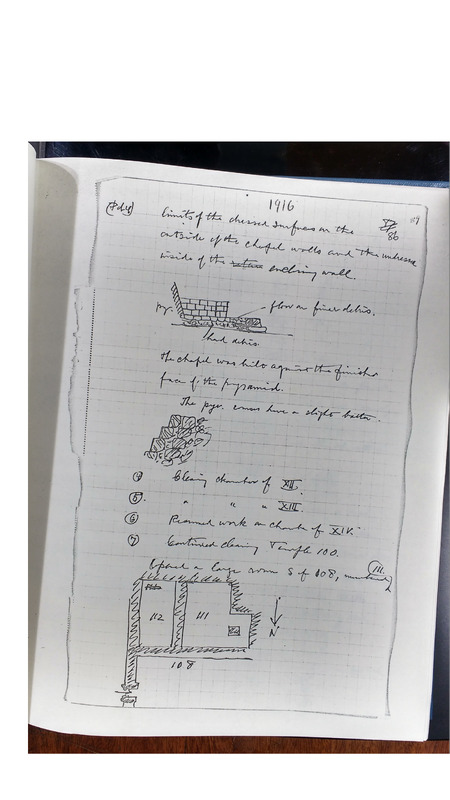 1916
(Feb 4)
IV/86
limits of the dressed surfaces on the
outside of the chapel walls and the undressed
inside of the enclosing wall.
pyr.
floor on finer debris.
hard debris.
the chapel was built against the finished
face of the pyramid.
The pyr. courses have a slight batter.
(4) Clearing chamber of XII.
(5) " " " XIII.
(6) Resumed work on chamber of XIV.
(7) Continued clearing Temple 100.
Opened a large room S of 108, numbered 111.
112
111
N
108